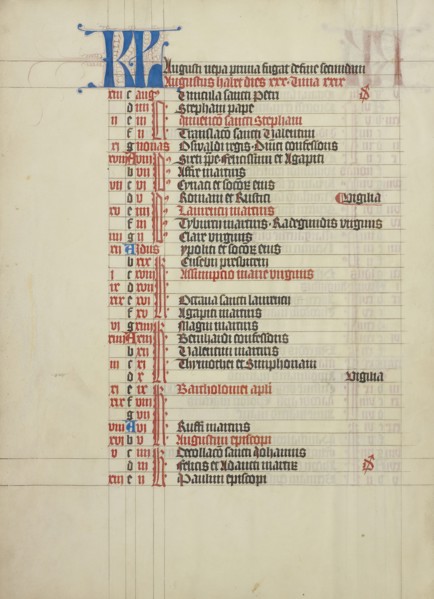 KL Augusti nepa prima fugat de fine secundam
Augustus habet dies xxx luna xxix
c aug Vincula sancti Petri
d iiii Stephani pape
ii e iii Inuencio sancti Stephani
f ii Translacio sancti Valentini
g nonas Oswaldi regis Dñici confessoris
A viii Sixti ppe felicissimi et Agapiti
b vii Affre martiris
vii c vi Ciriaci et socior eius
d v Romani et Rustici Vigilia
xv e iiii Laurencij martiris
f iii Tyburcij martiris Radegundis virginis
iiii g ii Clare virginis
xii A Idus Ypoliti et socior eius
b xix Eusebii presbiteri
i c xviii Assumpcio marie virginis
ix d xvii
xix e xvi Octaua sancti laurencij
f xv Agapiti martiris
vi g xiiii Magni martiris
A xiii Bernhardi confessoris
b xii Valentini martiris
iii c xi Thymothei et Simphoriani
d x Vigilia
xi e ix Bartholomei apli
xix f viii
g vii
viii A vi Ruffi martiris
xvi b v Augustini episcopi
v c iiii Decollacio sancti Johannis
d iii Felicis et Adaucti martir
xiii e ii Paulini episcopi